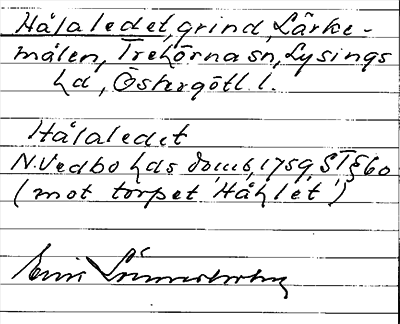 Hålaledet, grind, Lärke-
målen, Trehörna sn, Lysings
hd, Östergötl. l.
Hålaledet
N. Vedbo hds domb, 1759, ST § 60
(mot torpet "Håhlet")